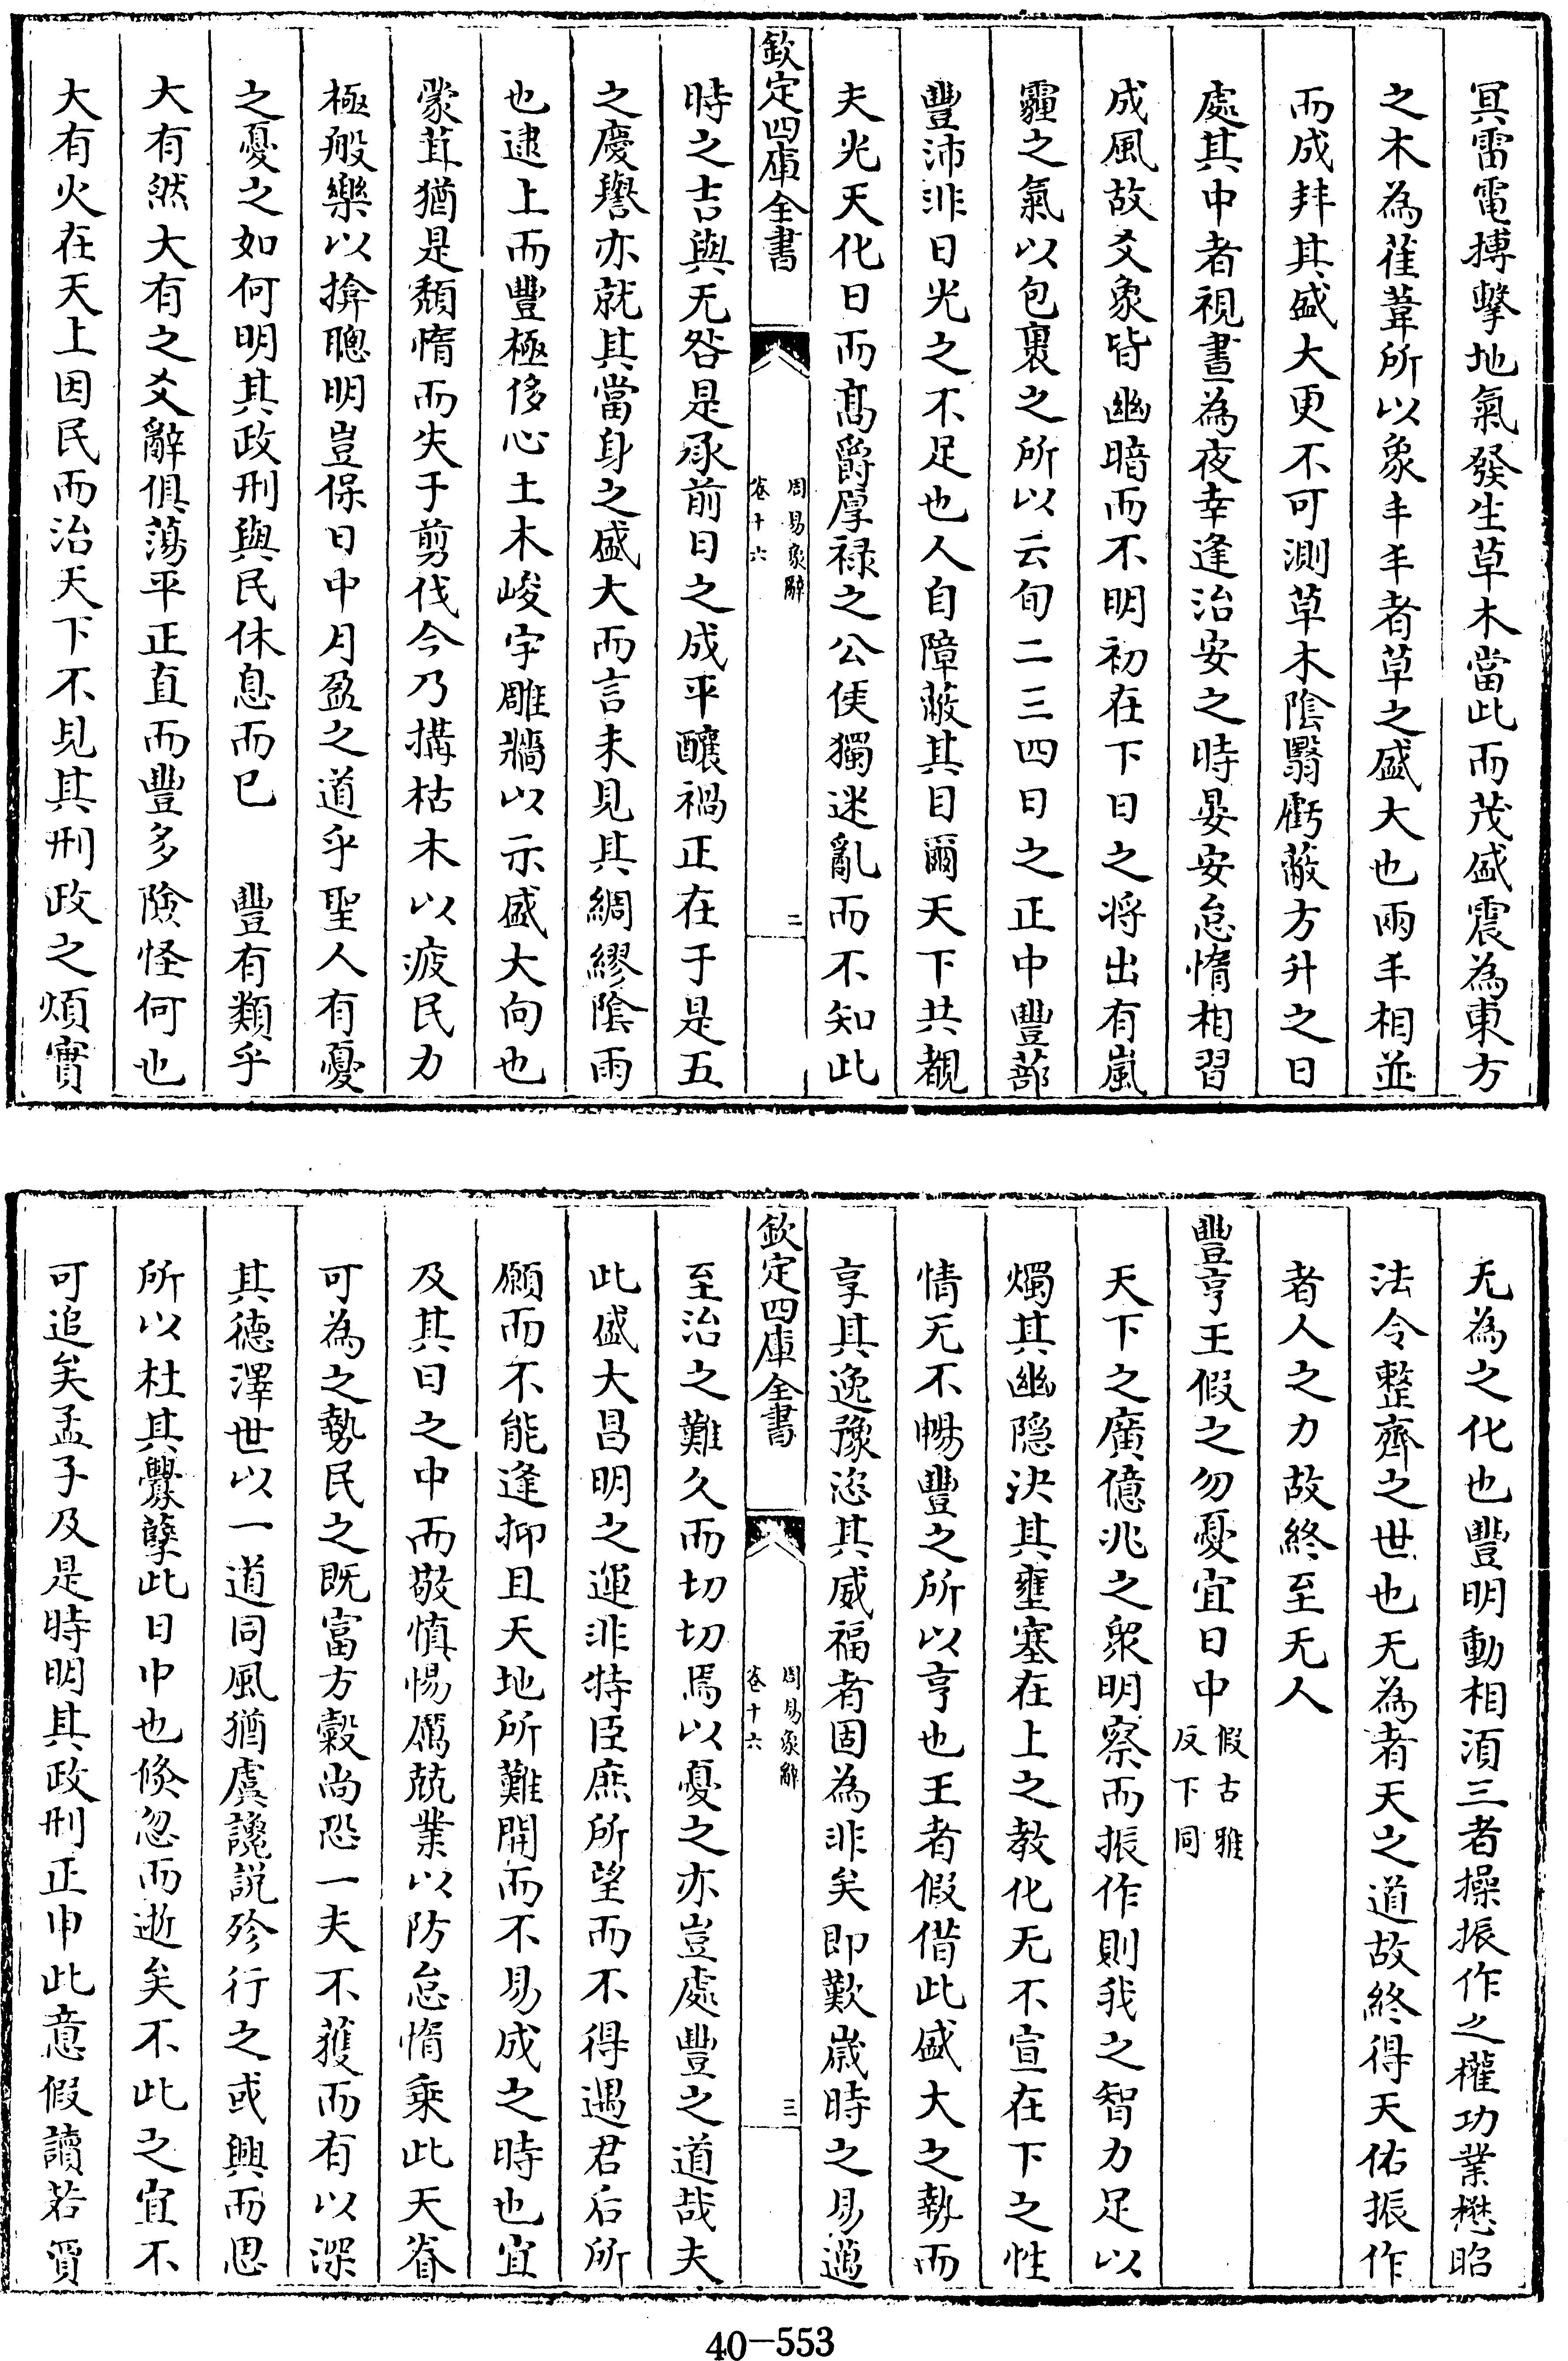 冥雷電搏擊地氣發生草木當此而茂盛震為東方
之木為萑葦所以象丰丰者草之盛大也兩丰相並
而成拜其盛大更不可測草木陰翳虧蔽方升之日
處其中者視晝為夜幸逢治安之時晏安怠惰相習
成風故爻象皆幽暗而不明初在下日之将出有嵐
霾之氣以包裹之所以云旬二三四日之正中豐蔀
豐沛非日光之不足也人自障蔽其目爾天下共覩
夫光天化日而髙爵厚禄之公使獨迷亂而不知此
欽定四庫全書
周易象辭
卷十六
二
時之吉與无咎是承前日之成平釀禍正在于是五
之慶譽亦就其當身之盛大而言未見其綢繆陰雨
也逮上而豐極侈心土木峻宇雕牆以示盛大向也
蒙茸猶是頽惰而失于剪伐今乃搆枯木以疲民力
極般樂以揜聰明豈保日中月盈之道乎聖人有憂
之憂之如何明其政刑與民休息而已　豐有類乎
大有然大有之爻辭俱蕩平正直而豐多險怪何也
大有火在天上因民而治天下不見其刑政之煩實
无為之化也豐明動相湏三者操振作之權功業懋昭
法令整齊之世也无為者天之道故終得天佑振作
者人之力故終至无人
豐亨王假之勿憂宜日中假古雅反下同
天下之廣億兆之衆明察而振作則我之智力足以
燭其幽隐決其壅塞在上之教化无不宣在下之性
情无不暢豐之所以亨也王者假借此盛大之勢而
享其逸豫恣其威福者固為非矣即歎歲時之易邁
欽定四庫全書
周易象辭
卷十六
三
至治之難久而切切焉以憂之亦豈處豐之道哉夫
此盛大昌明之運非特臣庶所望而不得遇君后所
願而不能逢抑且天地所難開而不易成之時也宜
及其日之中而敬慎惕厲兢業以防怠惰乗此天眷
可為之勢民之既富方穀尚恐一夫不獲而有以深
其德澤世以一道同風猶虞讒説殄行之或興而思
所以杜其釁孽此日中也倐忽而逝矣不此之宜不
可追矣孟子及是時明其政刑正申此意假讀若賈
40-553